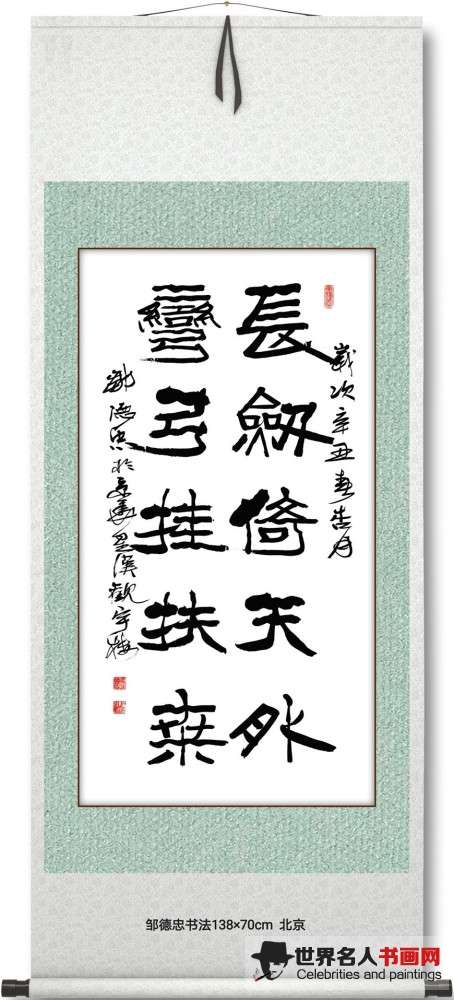 長劒倚天外
彎弓挂扶桒
歲次辛丑春杏月
鄒德忠於京華
邹德忠书法138×70cm 北京
世界名人书画网
Celebrities and paintings